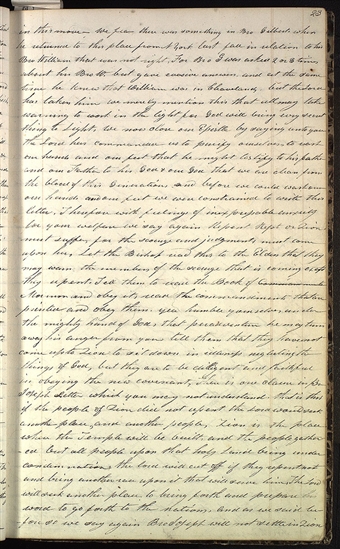 23
in this move – We fear there was something in Bro Gilbert when
he returned to this place from N York last fall in relation to his
Bro William that was not right. For Bro G was asked 2 or 3 times
about his Bro Wm but gave evasive answers and at the same
time he knew that William was in Cleaveland, but the Lord
has taken him we merely mention this that all may take
warning to work in the light for God will bring every secret
thing to light, We now close our Epistle by saying unto you
the Lord has commanded us to purify ourselves to wash
our hands and our feet that he might testify to his father
and our Father to his God & our God that we are clean from
the blood of this Generation and before we could wash our
our hands and our feet we were constrained to write this
letter Therefore with feelings of inexpressible anxiety
for your welfare we say again Repent Repent or Zion
must suffer for the scourge and judgments must come
upon her, Let the Bishop read this to the Elders that they
may warn the members of the scourge that is coming except
they repent Tell them to read the Book of
Mormon and obey it read the commandments that are
printed and obey them. yea humble yourselves under
the mighty hand of God, that peradventure he may turn
away his anger from you tell them that they have not
come up to Zion to sit down in idleness neglecting the
things of God, but they are to be diligent and faithful
in obeying the new covenant, There is one clause in Br
Joseph letter which you may not understand that is this
if the people of Zion did not repent the Lord would seek
another place and another people, Zion is the place
where the Temple will be built and the people gather
ed but all people upon that holy land being under
condemnation, the Lord will cut off if they repent not
and bring another race upon it that will serve him, the Lord
will seek another place to bring forth and prepare his
word to go forth to the nations. and as we said be
fore so we say again Bro Joseph will not settle in Zion